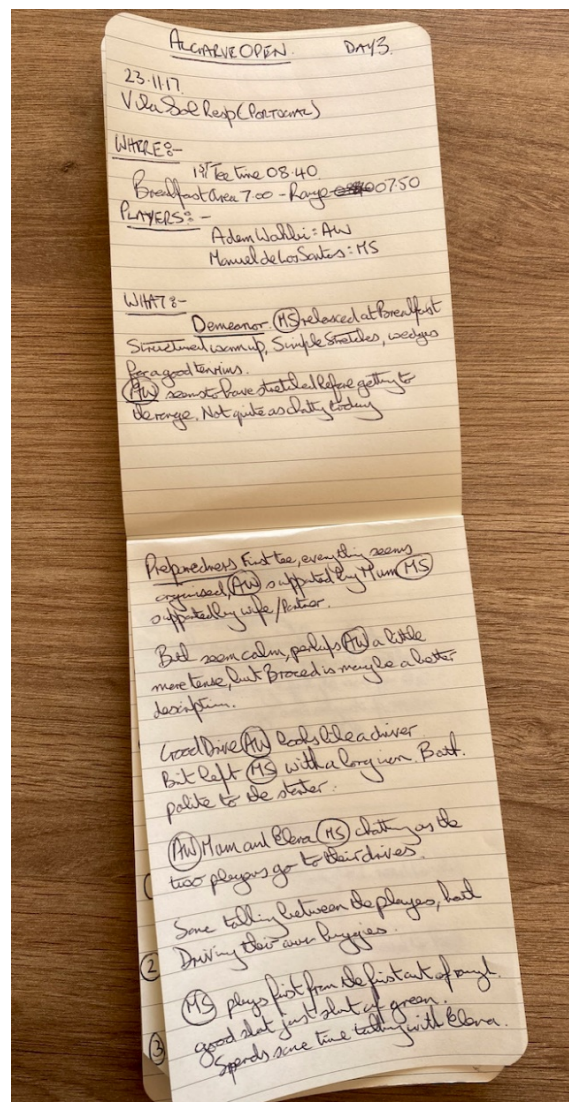 ALGARVE OPEN. DAY 3.
23.11.17.
Vila Sol Resp (PORTUGAL)
WHERE:-
1st Tee time 08.40.
Breakfast Area 7.00 - Range 07.50
PLAYERS:-
Adem Wahbi = AW
Manuel de Los Santos = MS
WHAT:-
Demeanor. MS relaxed at Breakfast
Structured warmup, Simple Stretches, wedges
for a good ten mins.
AW seems to have stretched before getting to
the range. Not quite as chatty today
Preparedness First tee, everything seems
organised, AW supported by Mum MS
supported by wife/Partner.
Both seem calm, perhaps AW a little
more tense, but Braced is maybe a better
description.
Good Drive AW looks like a driver
Bit left MS with a long iron. Both
polite to the starter.
AW Mum and Elena MS chatting as the
two players go to their drives.
Some talking between the players, both
Driving their own buggies.
MS plays first from the first cut of rough.
good shot just short of green.
Spends some time talking with Elena.
2
3